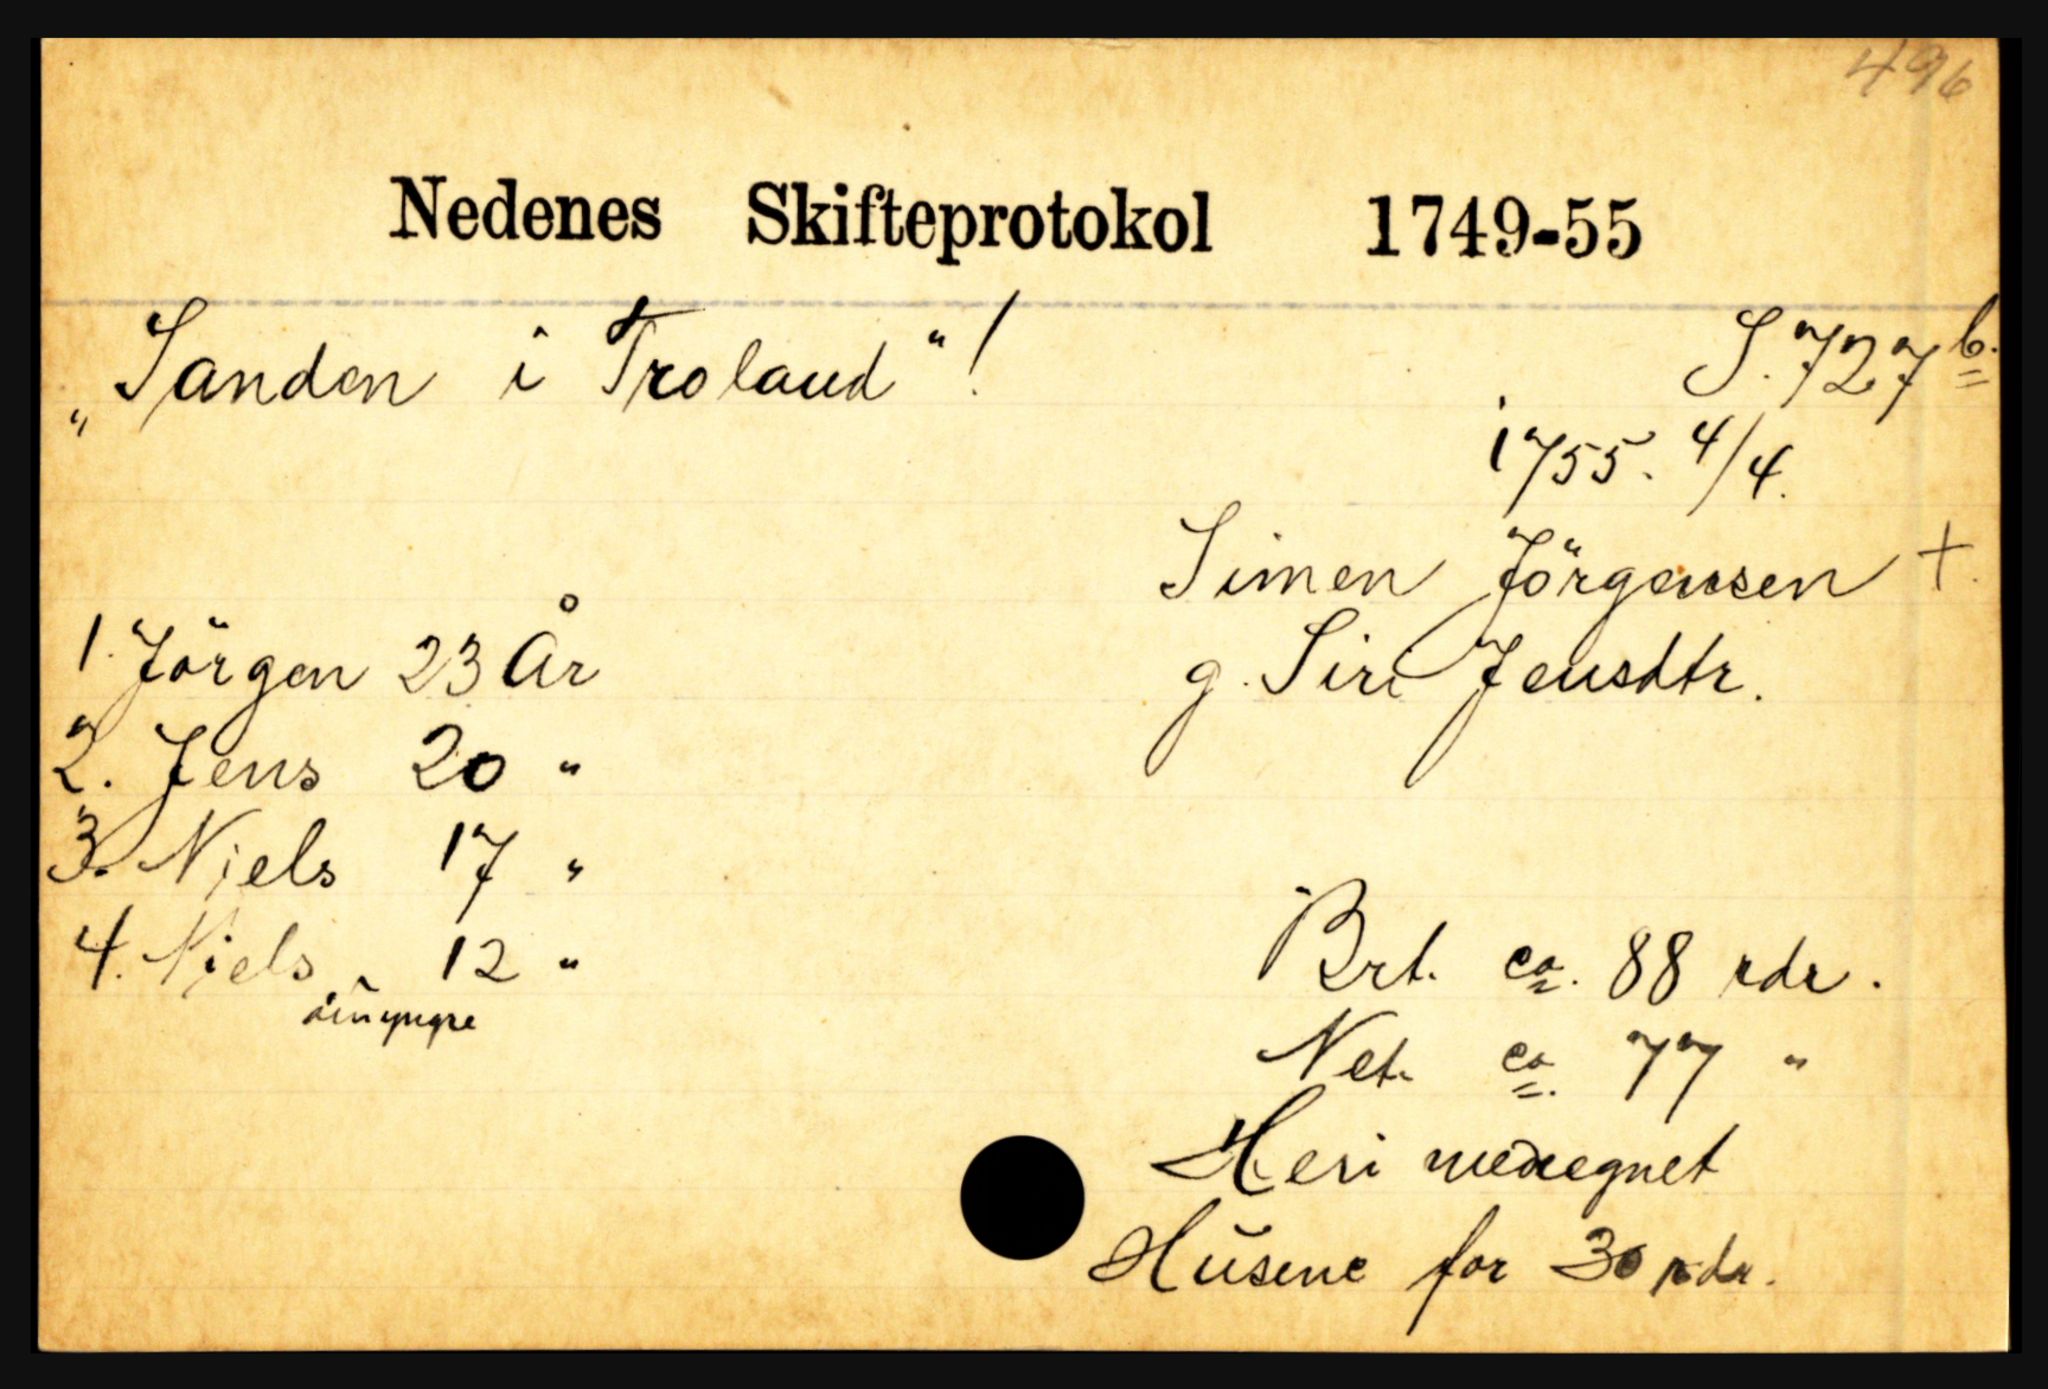 496
Nedenes Skifteprotokol 1749-55
„Sanden i Troland“!
S. 727 b.
1755. 4/4.
Simen Jörgensen +.
g. Siri Jensdtr.
1. Jörgen 23 År
2. Jens 20 "
3. Niels 17 "
4. Niels 12 "
yngre
Brt. ca. 88 rdr.
Net. ca. 77 "
Heri medregnet
Husene for 30 rdr.